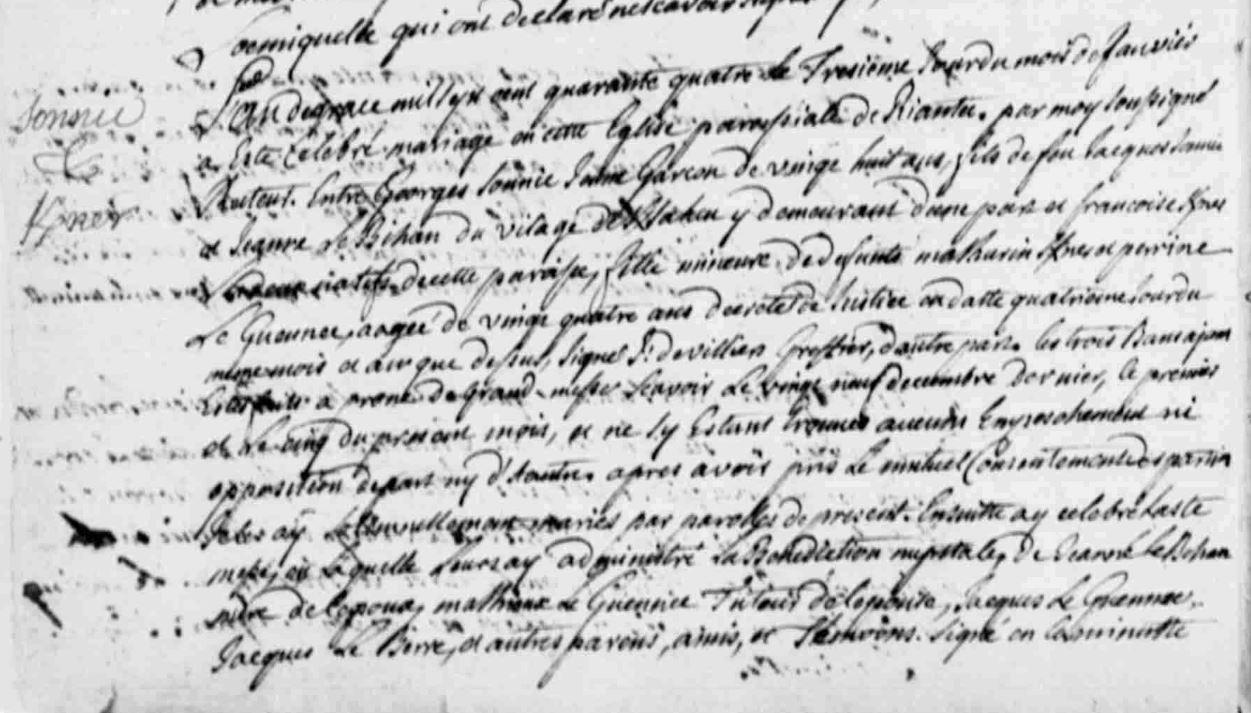 Loemiquelle qui ont declaré ne scavoir
L'an de grace mil sept cent quarante quatre Le Tresiéme Jour du mois de Janvier
a Esté Celebré mariage en cette Eglise paroissiale de Riantec. par moy soussigné
Recteur. Entre Georges Sonnic Jeune Garcon de vingt huit ans, fils de feu Jacques Sonnic
Sonnic
&
Kner
et Jeanne Le Bihan du vilage de y demeurant d'une part et francoise Kner
de cette paroisse, fille mineure de defunts mathurin Kner et perrine
Le Guennec, aagée de vingt quatre ans decreté de Justice en datte quatrieme Jour du
meme mois et an que dessus, signé Sr. de villiers Greffier, d'autre part. les trois Bans ajant
Estés faits a prone de grand messe scavoir Le vingt neuf decembre dernier, le premier
et le cinq du present mois, et ne s'y Estant trouvés aucuns Empeschement ni
opposition de part ny d'autre. apres avoir pris Le mutuel Consentement des parties
Je les ay solemnellement mariés par paroles de present. Ensuitte ay celebré la ste
messe, en laquelle leurs ay administré La Benediction nuptiale, de Jeanne le Bihan
mere de l'epoux, mathieux Le Guennec Tuteur de l'epouse, Jacques Le Guennec,
Jacques Le Berre, et autres parens, amis, et Temoins. signé en la minutte